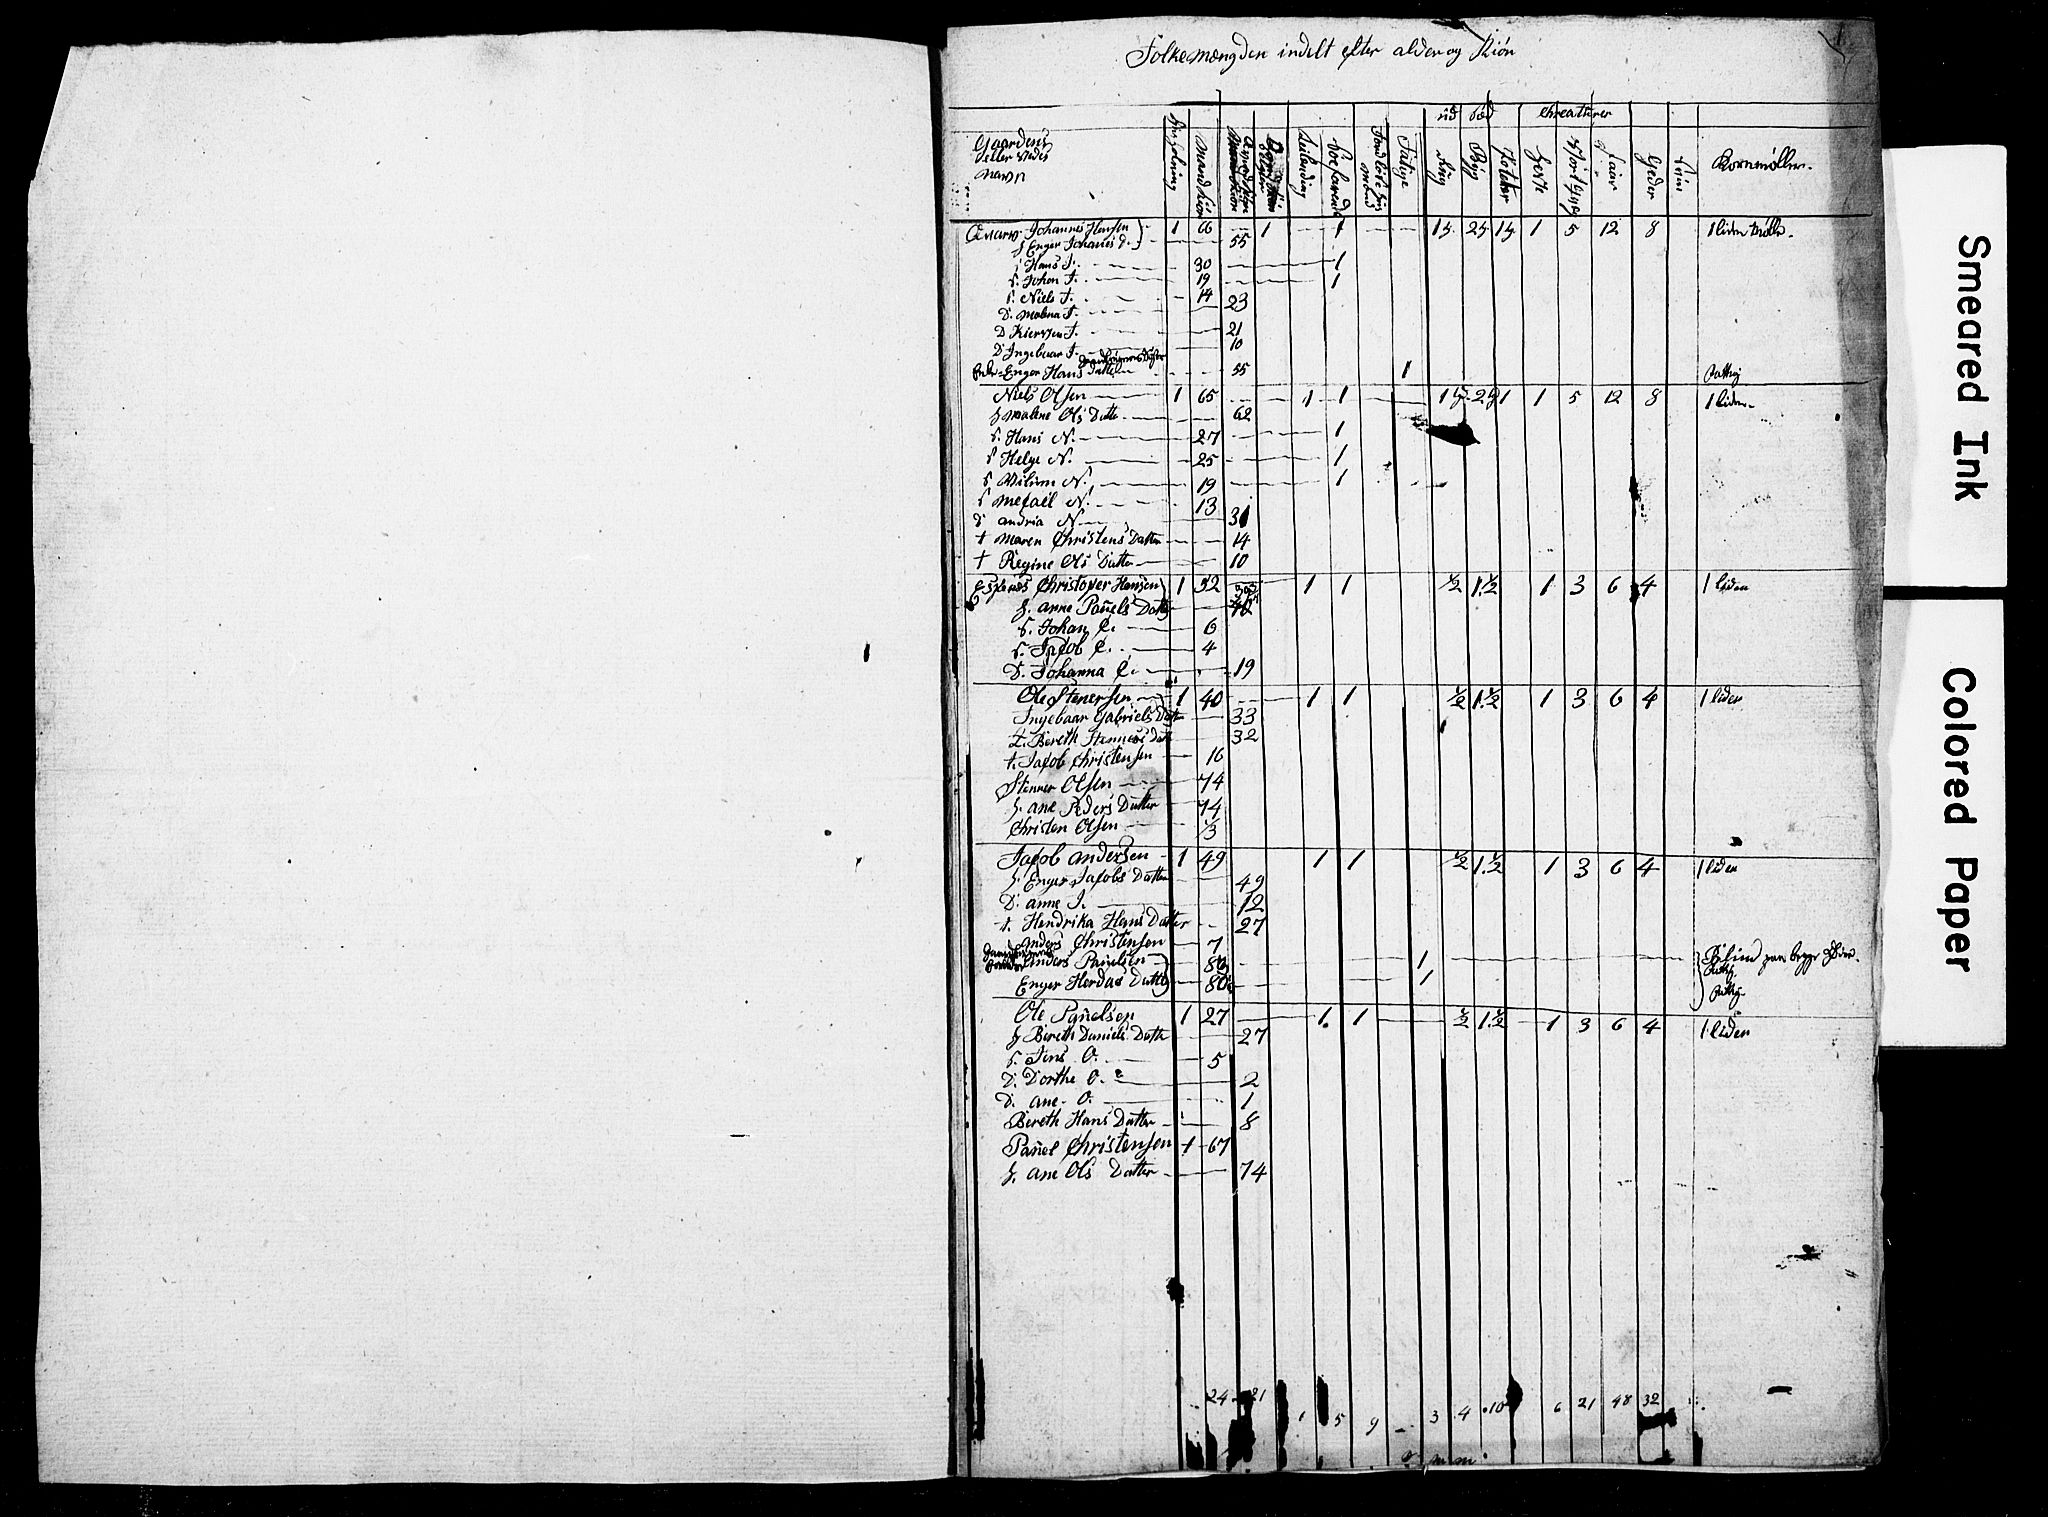 Folkemængden indelt efter alder og Kiøn
1
ud sæd
Creaturer
Gaardens eller steds navn
Huusholning
Mandkiøn
Qvindekiøn
Leilending
Soefarende
Fattige
Rug
Byg
Poteter
Heste
Faar
Geder
Sviin
Kornmøller
Johannes Hansen 1 66 1 1 5 12 8 1 liden Mølle
H Enger Johanes D. 55
S Hans J. 30 1
S. Johan J. 19 1
S. Niels J. 14
D. Malena J. 23
D Kiersten J. 21
D Ingebaar J. 10
Enger Hans datter 55 1 fattig
Niels Olsen 1 65 1 1 1 5 12 8 1 liden
H Malene Ols Datter 62
S. Hans N. 27 1
S Helge N. 25 1
S Vilum N. 19 1
S Mekael N. 13
D Andria N 31
t Maren Christens Datter 14
t Regine Ols Datter 10
Espenes Christoper Hansen 1 52 1 1 ½ 1.½ 1 3 6 4 1 liden
H. Anne Pauels Datter
S. Johan C. 6
S. Jacob C. 4
D. Johanna C. 19
Ole Stenersen 1 40 1 1 ½ 1.½ 1 3 6 4 1 liden
Ingebaar Gabriels Datter 33
t. Bereth Steners Datter 32
t. Jacob Christensen 16
Stener Olsen 74
H. Ane Peders Datter 74
Christen Olsen ⅓
Jacob Andersen 1 49 1 1 ½ 1.½ 1 3 6 4 1 liden
H Enger Jacobs Datter 49
D. Anne J. 12
t. Hendrika Hans Datter 27
Anders Christensen 7
Anders Pauelsen 1 Blind paa begge Øine
Enger Herdas Datter 1 fattig
Ole Pauelsen 1 27 1 1 ½ 1.½ 1 3 6 4 1 liden
H Bereth Daniels Datter 27
S. Jens O. 5
D. Dorthe O. 2
D. Ane O. 1
Bereth Hans Datter 8
Pauel Christensen 1 67
H. Ane Ols Datter 74
24 21
1 5 9 3 4 10 6 21 48 32
Smeared Ink
Colored Paper